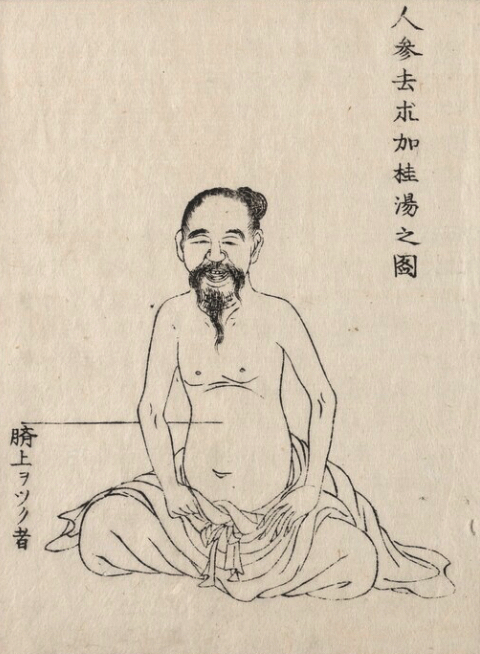 人參去朮加桂湯之圖
臍上ヲツク者